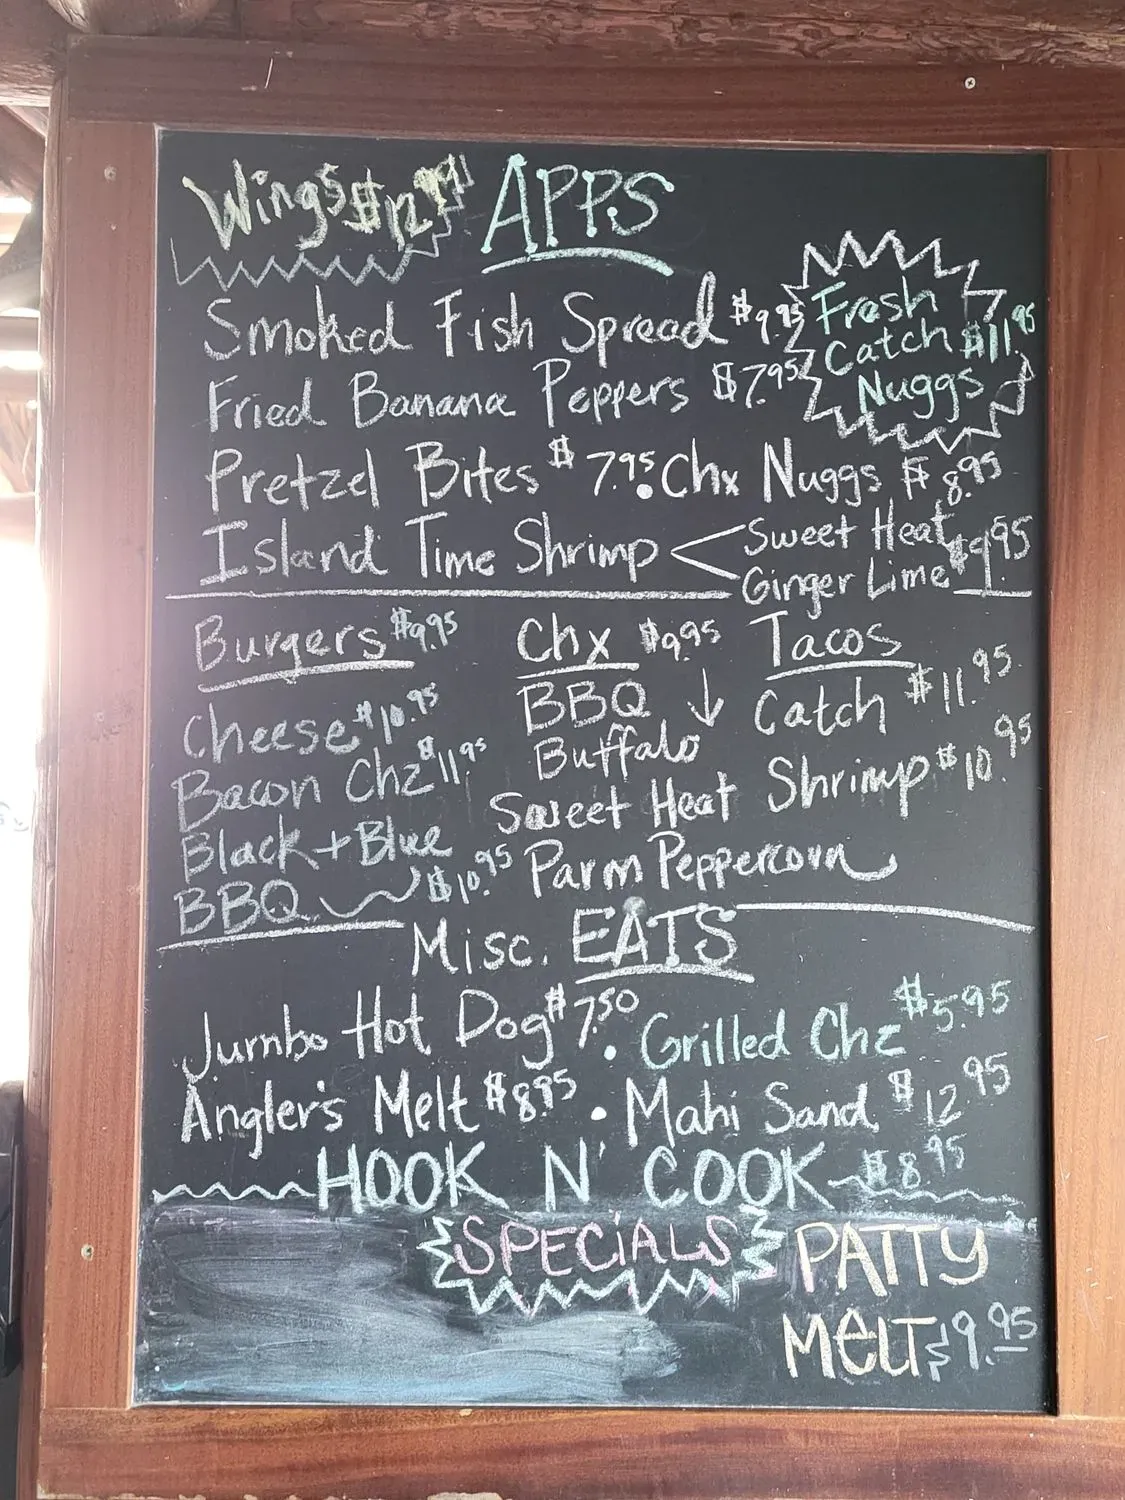 Wings $12.99 APPS
Smoked Fish Spread $9.95
Fresh
Catch $11.95
Nuggs
Fried Banana Peppers $7.95
Pretzel Bites $7.95 • Chx Nuggs $8.95
Island Time Shrimp < Sweet Heat
Ginger Lime $9.95
Burgers $9.95
Cheese $10.95
Bacon Chz $11.95
Black + Blue
BBQ $10.95
Chx $9.95
BBQ ↓
Buffalo
Sweet Heat
Parm Peppercorn
Tacos
Catch $11.95
Shrimp $10.95
Misc. EATS
Jumbo Hot Dog $7.50 • Grilled Chz $5.95
Angler's Melt $8.95 • Mahi Sand. $12.95
HOOK N' COOK $8.95
SPECiALS PATTY
MELT $9.95